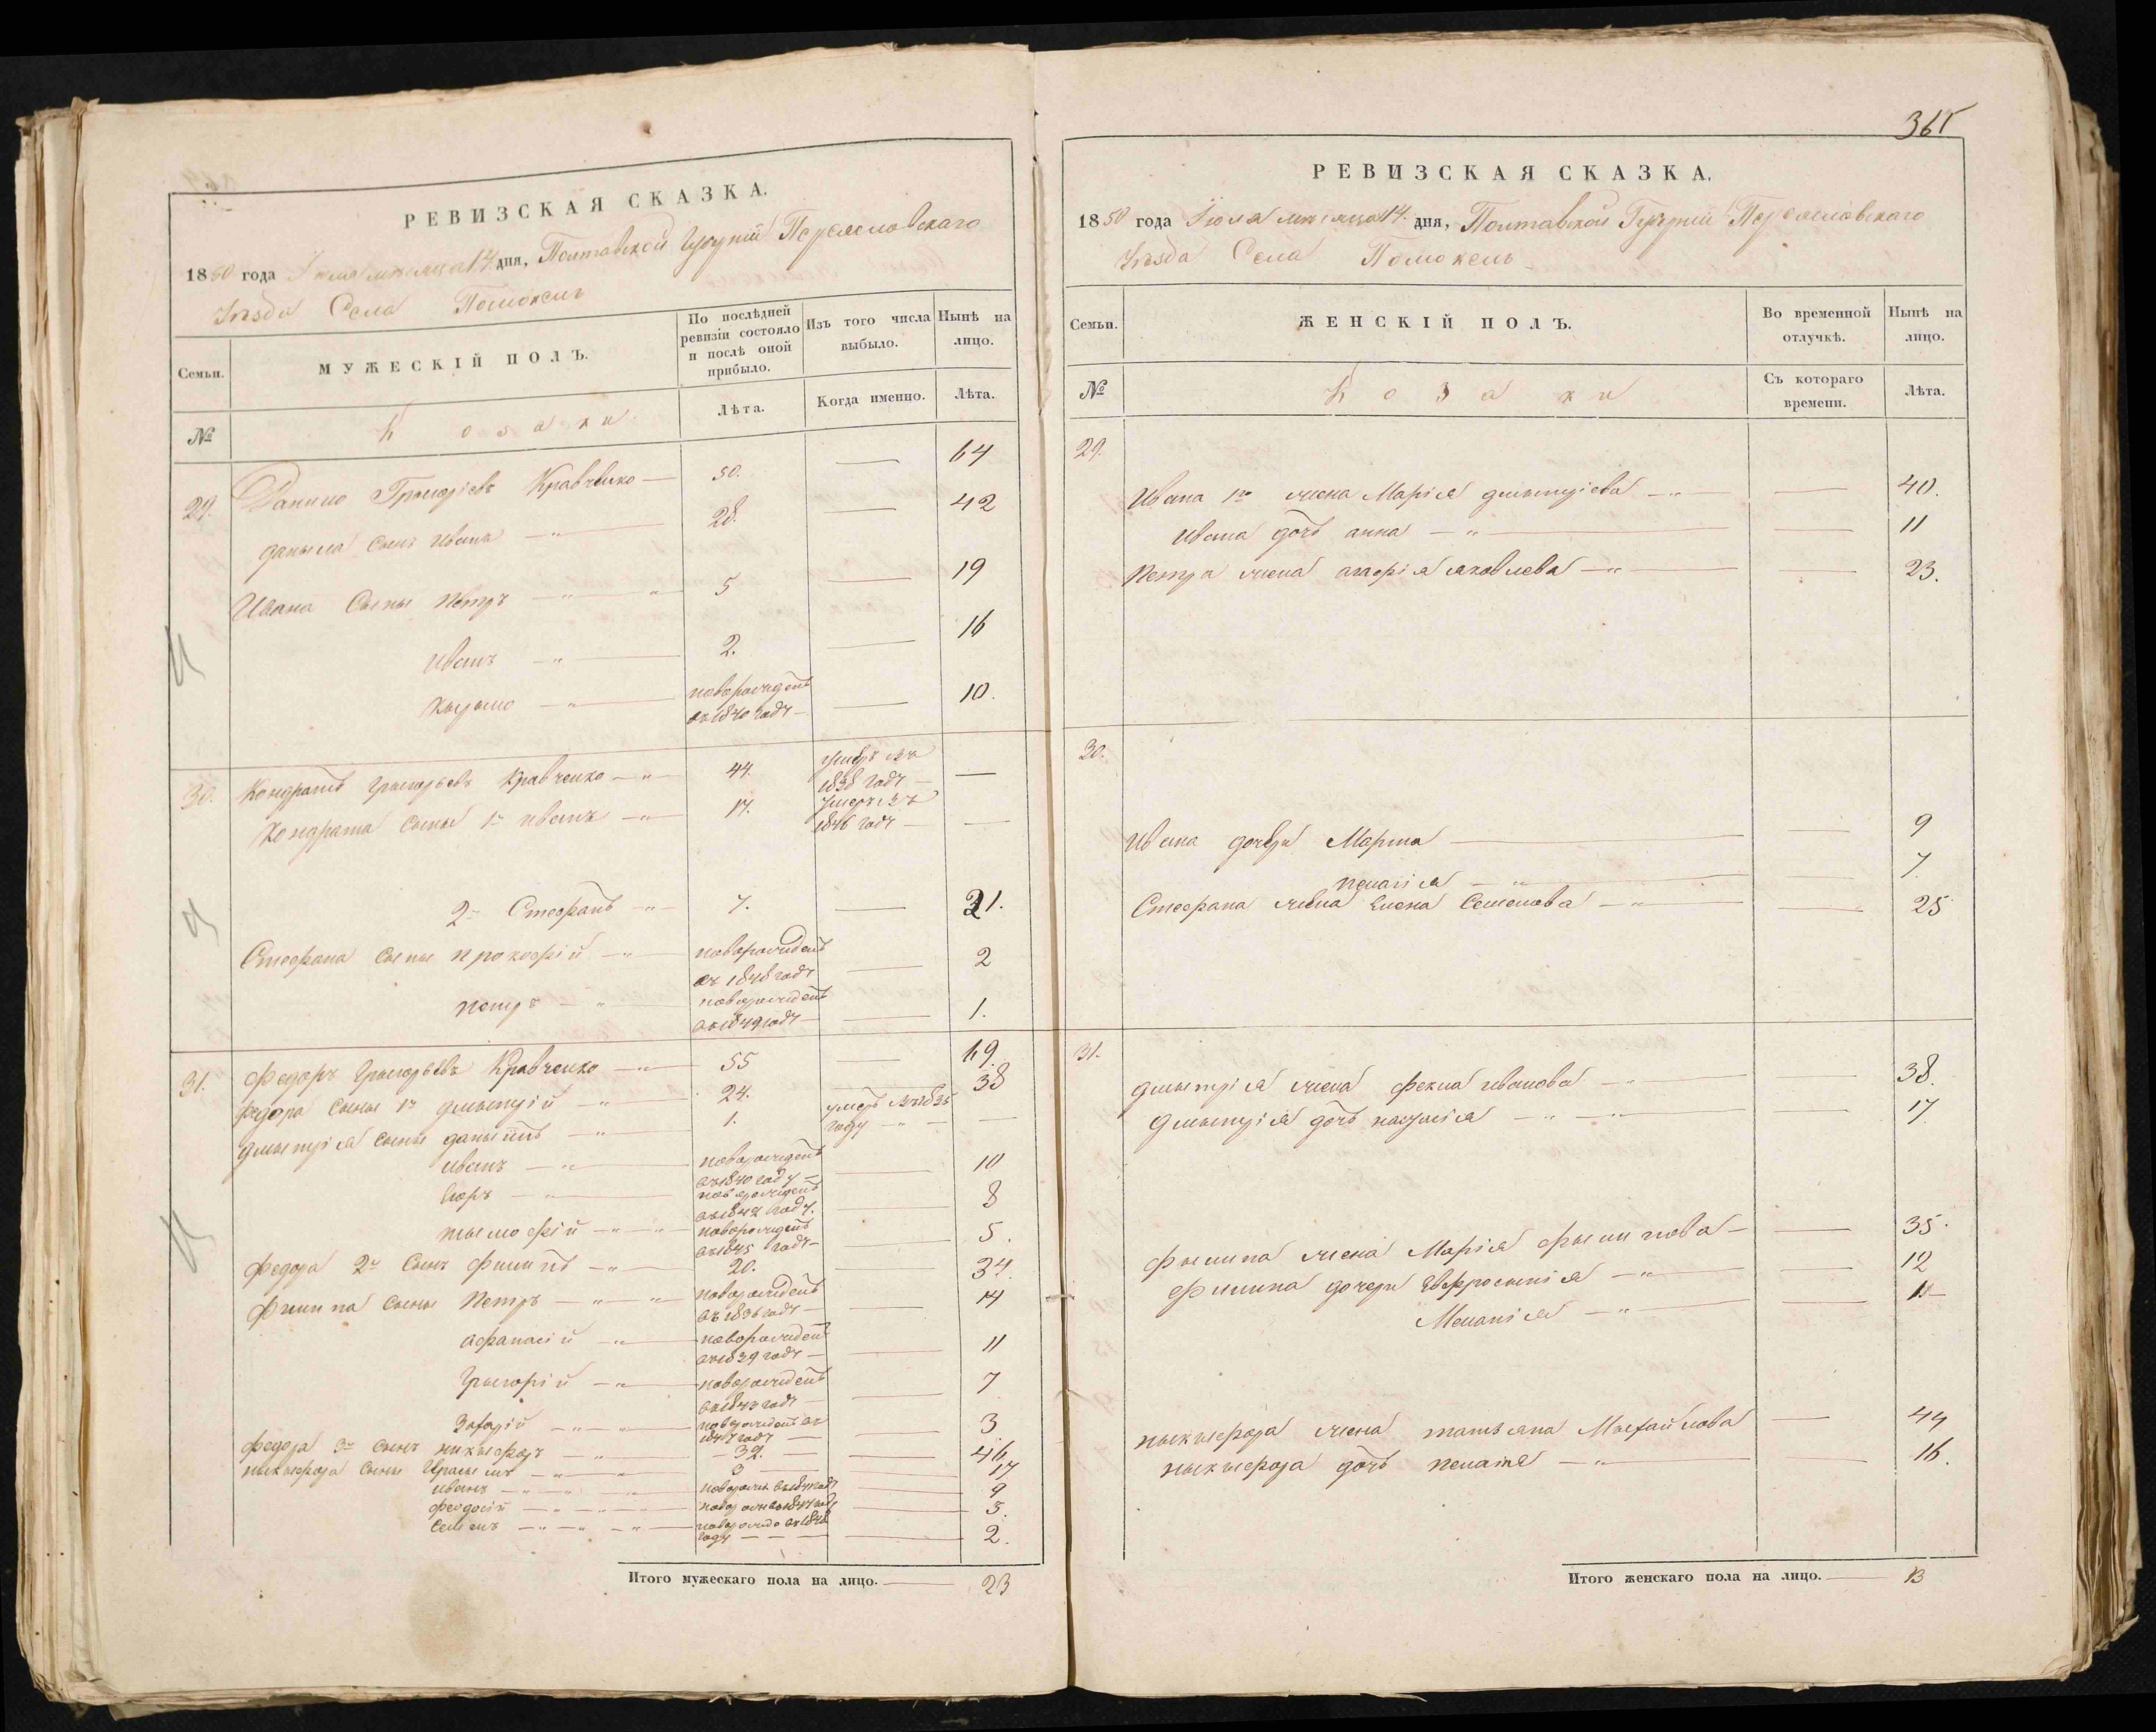 РЕВИЗСКАЯ СКАЗКА.
1850 года Июля месяца 14 дня, Полтавской Губерніи Переяславскаго
Уѣзда Села Помоклъ
Семьи.
МУЖЕСКІЙ ПОЛЪ.
По послѣдней ревизіи состояло и послѣ оной прибыло.
Изъ того числа выбыло.
Нынѣ на лицо.
№
Козаки
Лѣта.
Когда именно.
Лѣта.
29. Данило Григоріевъ Кравченко — 50. — 64
даныла Сынъ Иванъ — 28. — 42
Ивана Сыны Петръ — 5 — 19
Иванъ — 2. — 16
новорожденъ
въ 1840 году — 10.
30. Кондратъ Григорьевъ Кравченко — 44. умеръ въ 1838 году —
Кондрата Сыны 1й иванъ — 17. Умеръ въ 1846 году —
2й Стефанъ — 7. — 21.
Стефана Сыны прокофій — новорожденъ въ 1848 году — 2
петръ — новорожденъ въ 1849 году — 1.
31. Федоръ Григорьевъ Кравченко — 55 — 69.
Федора Сыны 1й дмытрій — 24. — 38
дмытрія Сыны даныилъ — 1. умеръ въ 1835 году —
иванъ — новорожденъ въ 1840 году — 10
Егоръ — новорожденъ въ 1842 году. — 8
тымофій — новорожденъ въ 1845 году — 5.
федора 2й Сынъ Филипъ — 20. — 34.
Филипа Сыны Петръ — новорожденъ въ 1836 году — 14
афанасій — новорожденъ въ 1839 году — 11
Григорій — новорожденъ въ 1843 году — 7
Захарій — новорожденъ въ 1847 году — 3
федора 3й Сынъ никифоръ — 32. — 46
ныкыфора Сыны Герасымъ — 3 — 17
иванъ — 9
феодосій — 3.
Семенъ — новорожде въ 1848 году — 2.
Итого мужескаго пола на лицо. — 23
361
РЕВИЗСКАЯ СКАЗКА.
1850 года Іюля месяца 14. дня, Полтавской Губерніи Переяславскаго
Уѣзда Села Помоклъ
Семьи.
ЖЕНСКІЙ ПОЛЪ.
Во временной отлучкѣ.
Нынѣ на лицо.
№
Козаки
Съ котораго времени.
Лѣта.
29.
Ивана 1го жена Марія дмытріева — 40.
Ивана дочь анна — 11
Петра жена агафія яковлева — 23.
30.
Ивана дочери Марта — 9
пелагія — 7.
Стефана жена Елена Семенова — 25
31.
дмытрія жена фекла иванова — 38.
дмытрія дочь — 17
Филипа жена Марія филипова — 35.
Филипа дочери Евфросынія — 12
Меланія —
ныкыфора жена татьяна Мыхайлова — 44
ныкыфора дочь пелагія — 16.
Итого женскаго пола на лицо. — 13